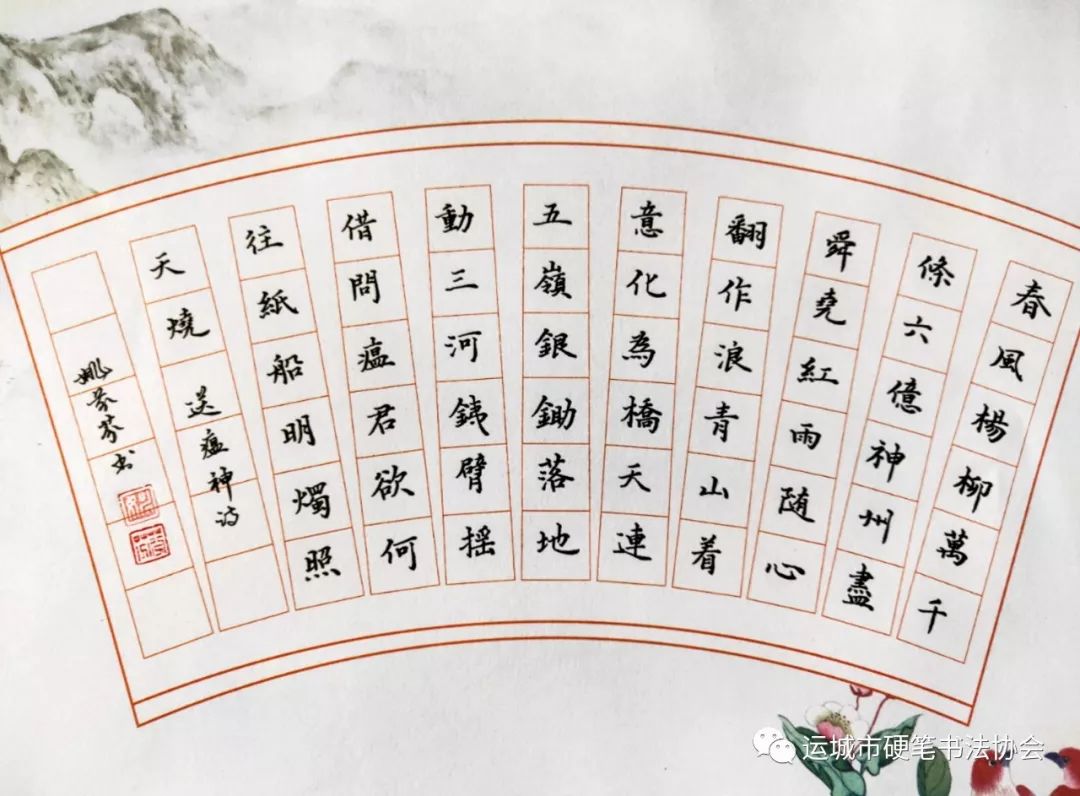 春風楊柳萬千
條六億神州盡
舜堯紅雨随心
翻作浪青山着
意化為橋天連
五嶺銀鋤落地
動三河銕臂摇
借問瘟君欲何
往紙船明燭照
天燒 送瘟神诗
姚芬芬书
运城市硬笔书法协会